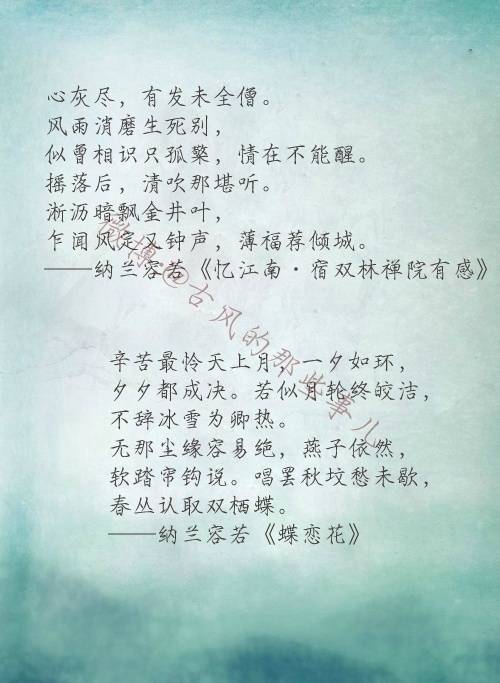 心灰尽，有发未全僧。
风雨消磨生死别，
似曾相识只孤檠，情在不能醒。
摇落后，清吹那堪听。
淅沥暗飘金井叶，
乍闻风定又钟声，薄福荐倾城。
——纳兰容若《忆江南·宿双林禅院有感》
微博:@古风的那些事儿
辛苦最怜天上月，一夕如环，
夕夕都成决。若似月轮终皎洁，
不辞冰雪为卿热。
无那尘缘容易绝，燕子依然，
软踏帘钩说。唱罢秋坟愁未歇，
春丛认取双栖蝶。
——纳兰容若《蝶恋花》